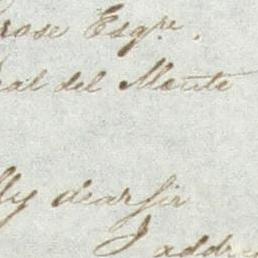 rose Esqre.
eal del Monte
My dear Sir
I addre